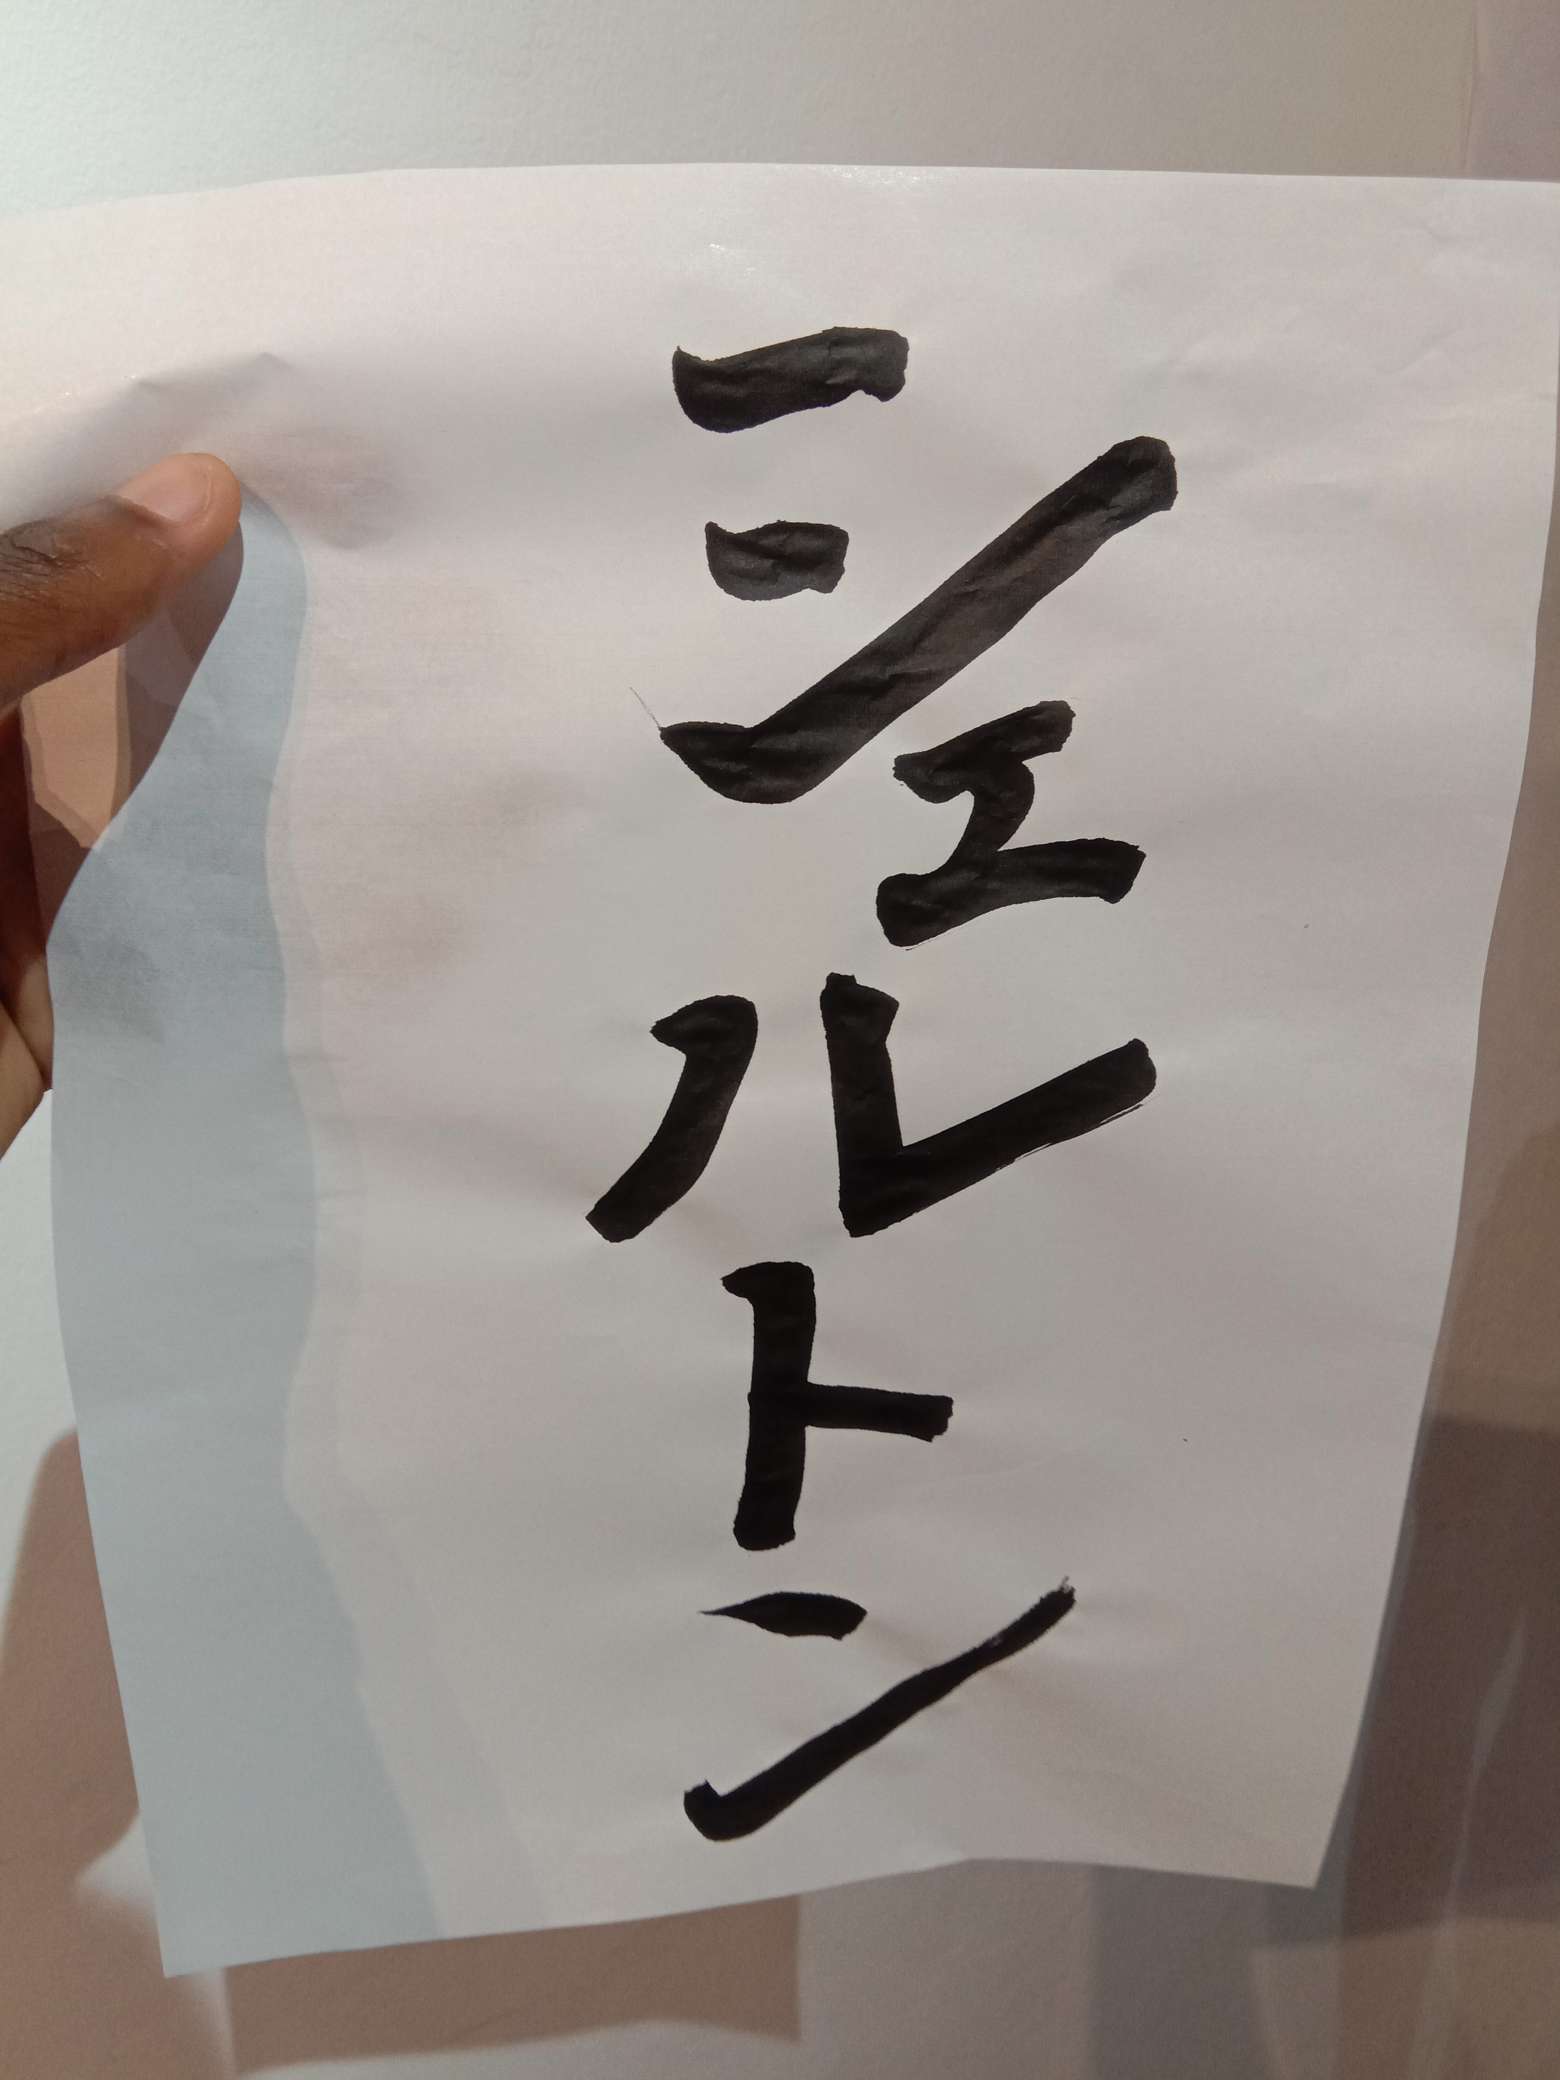 シェルトン